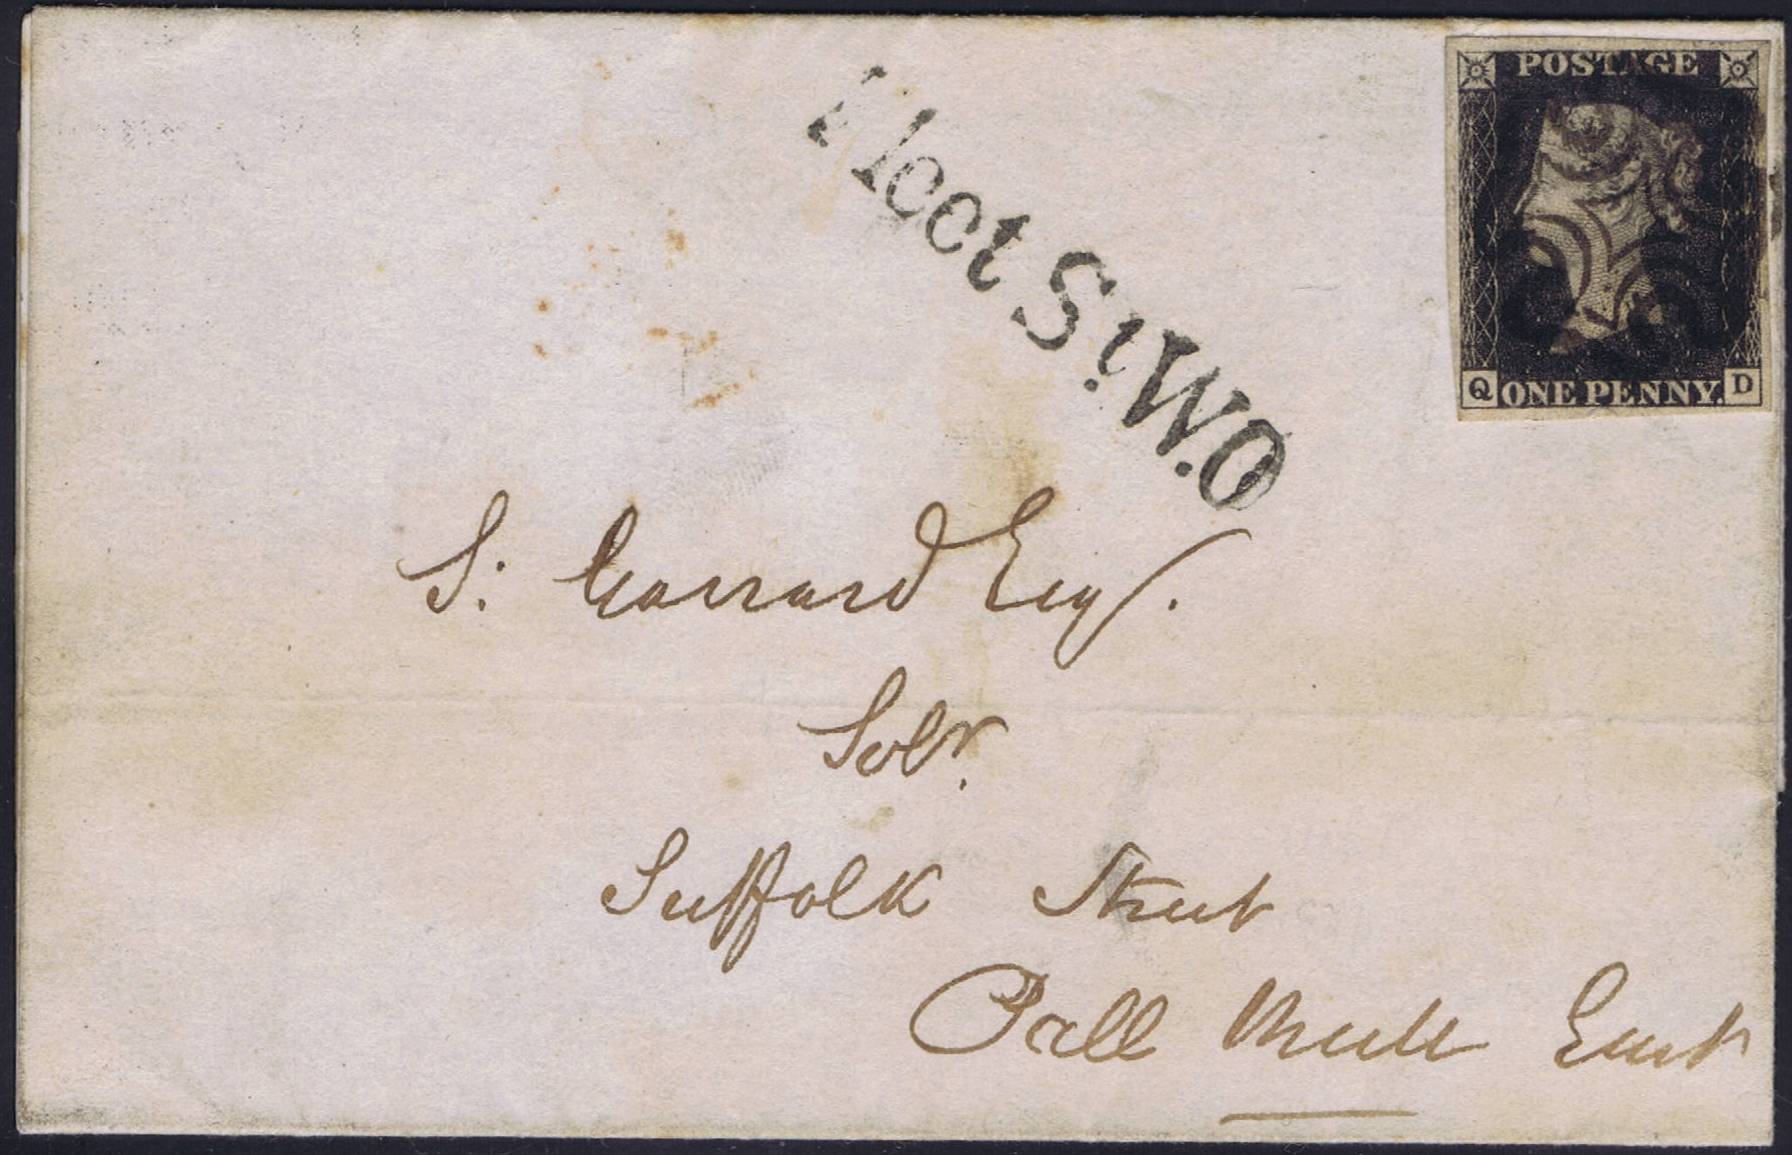 POSTAGE
Q ONE PENNY. D
Fleet St. W.O
S: Garrard Esq.
Solr.
Suffolk Street
Pall Mall East